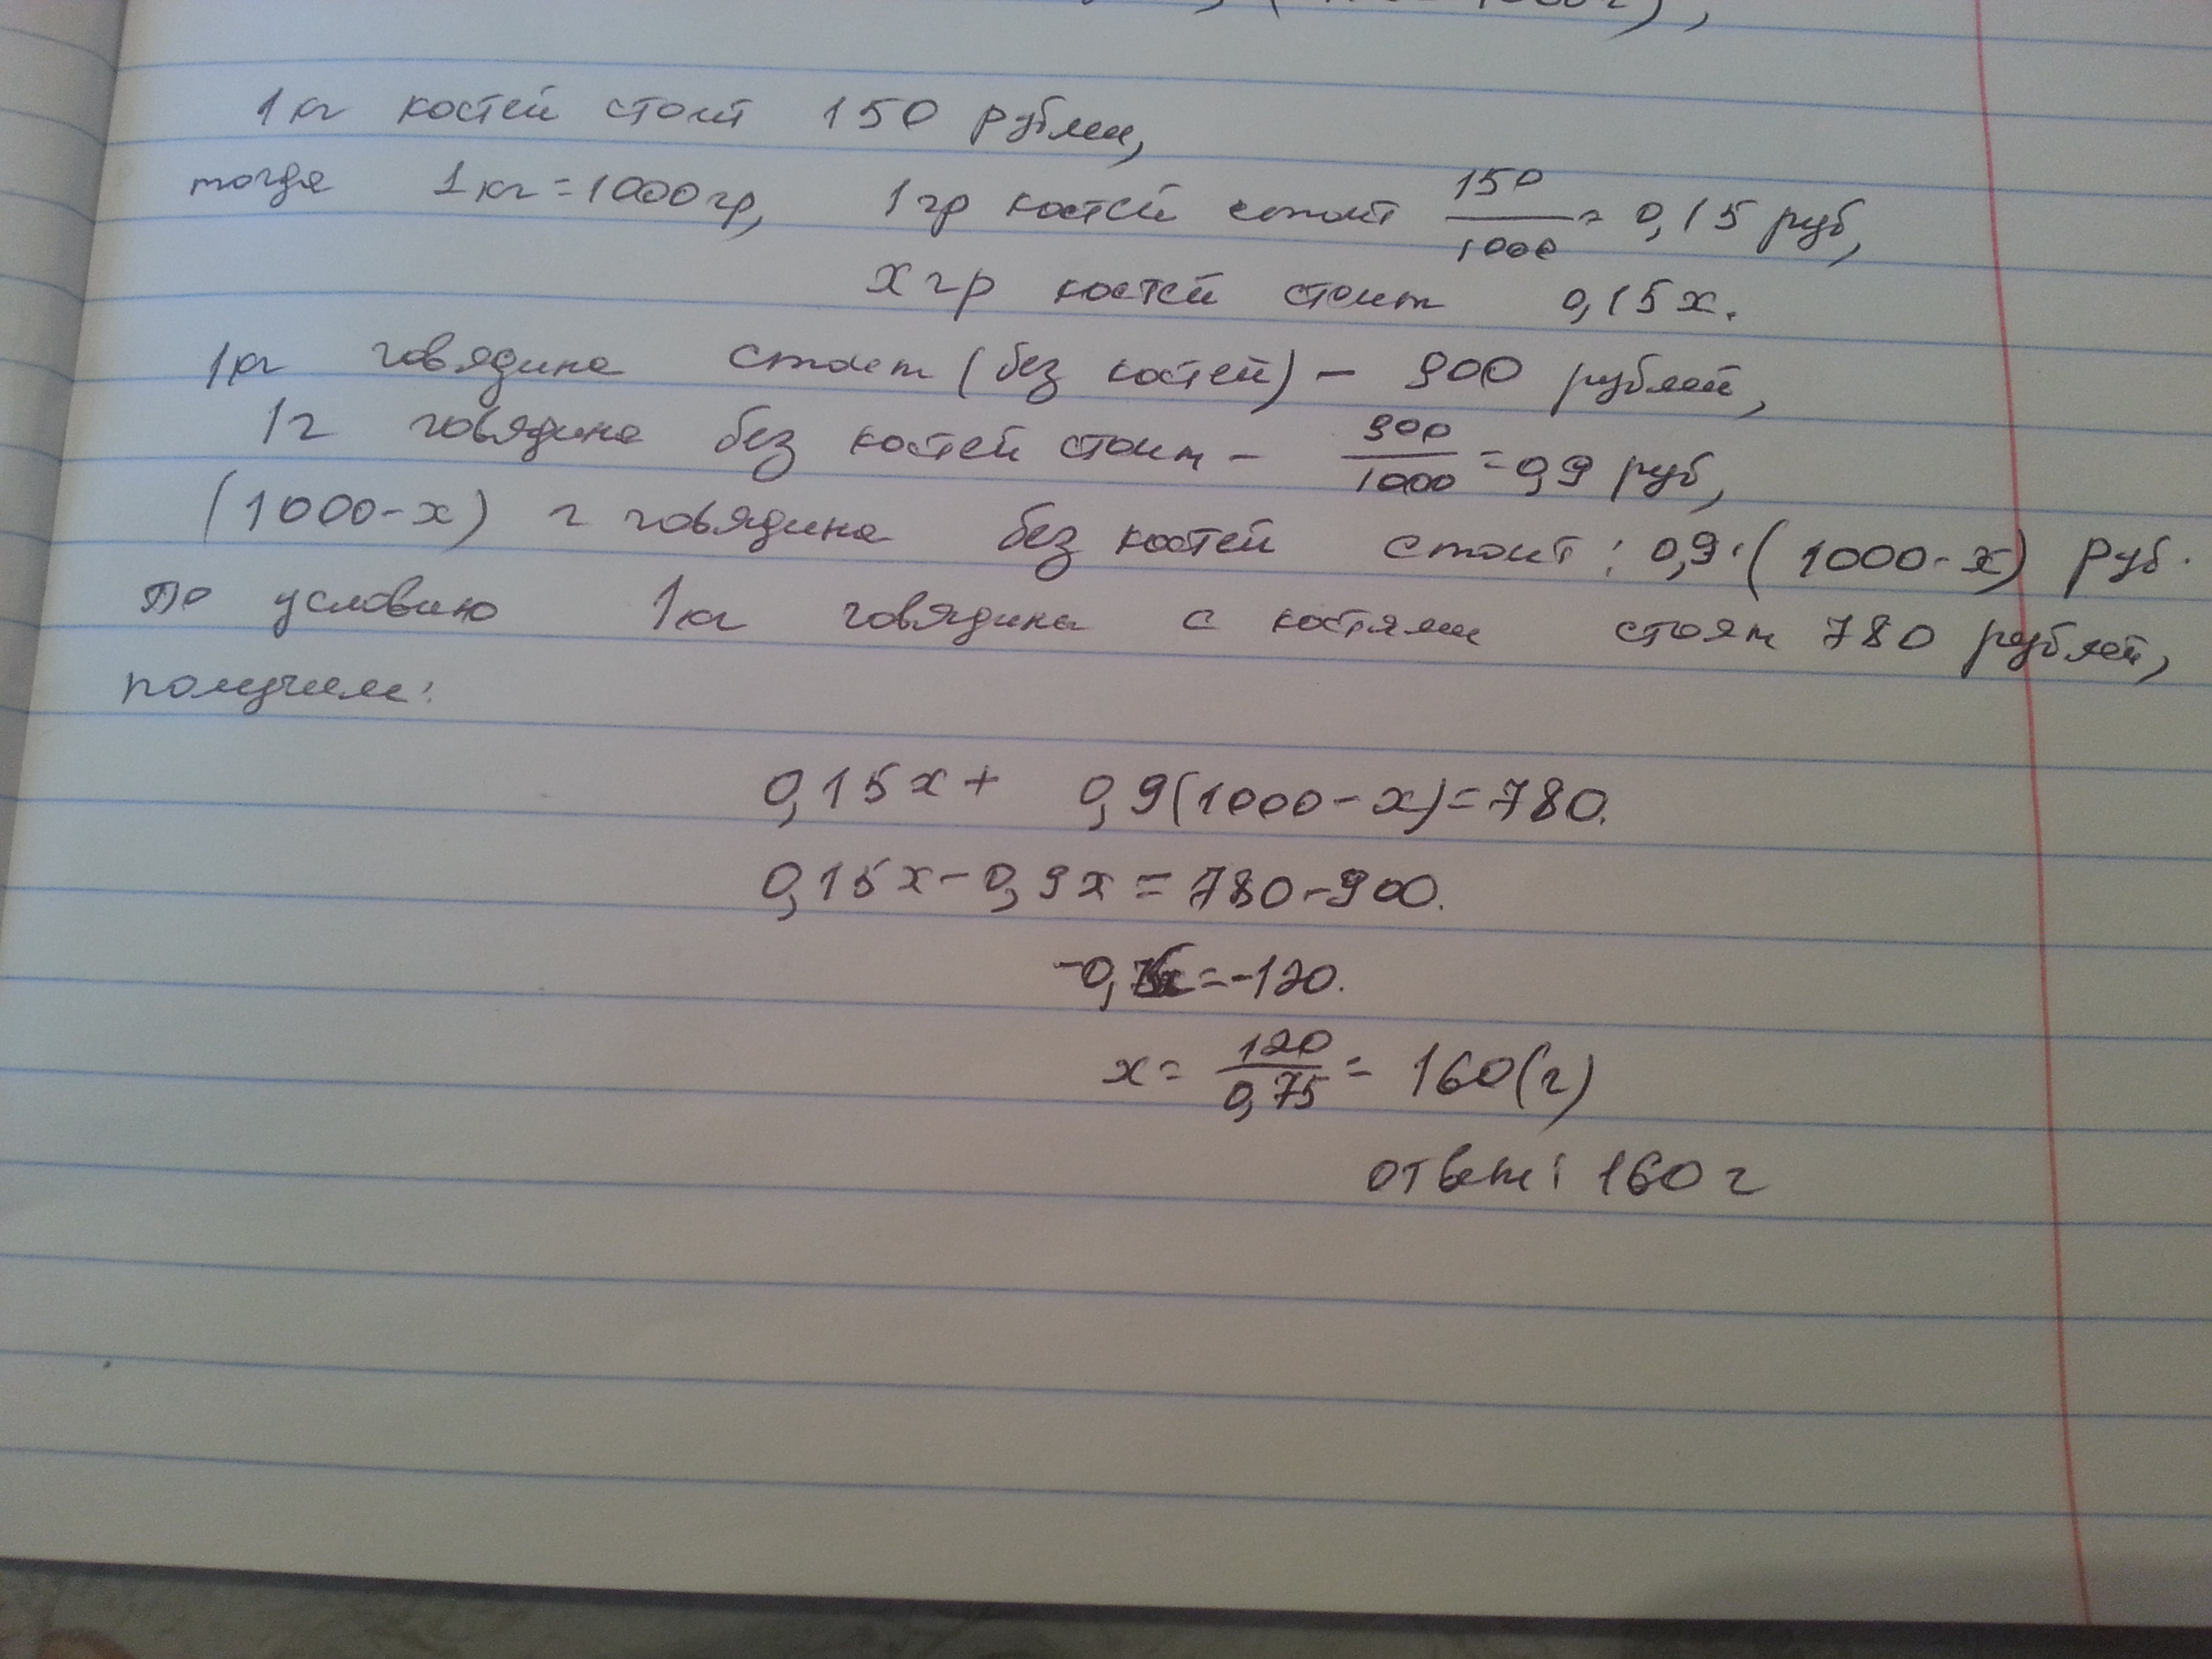 1кг костей стоит 150 рублей,
тогда 1кг=1000гр, 1гр костей стоит 150/1000 = 0,15 руб,
x гр костей стоит 0,15x.
1кг говядина стоит (без костей) - 900 рублей,
1г говядина без костей стоит - 900/1000 = 0,9 руб,
(1000-x) г говядина без костей стоит: 0,9·(1000-x) руб.
По условию 1кг говядины с костями стоят 780 рублей,
получим:
0,15x+ 0,9(1000-x)=780.
0,15x-0,9x=780-900.
-0,75x=-120.
x= 120/0,75 = 160(г)
ответ: 160 г